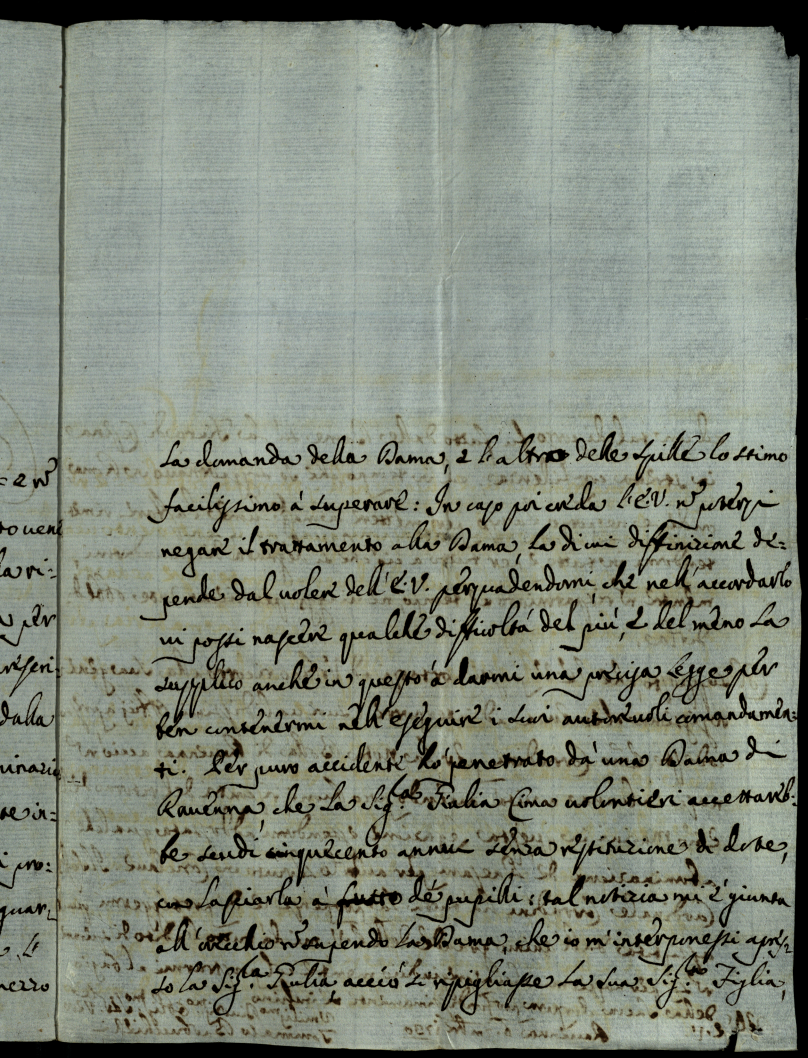 = e nº
to veni
la ri=
per
riferi
dalla
minario
te in=
i pro=
quar=
mezzo
La domanda della Dama, e l'altra delle spille lo stimo
facilissimo à superare: In caso poi creda l'E.V. nº potersi
negare il trattamento alla Dama, la di cui diffinizione de=
pende dal volere dell'E.V. persuadendomi, che nell'accordarlo
vi possi nascere qualche difficoltá del piú, e del meno La
supplico anche in questo à darmi una precisa Legge per
ben contenermi nell'eseguire i suoi autorevoli comandamen=
ti. Per puro accidente hó penetrato dà una Dama di
Ravenna, che La Sig.ra Giulia Cima volontieri accettareb=
be scudi cinquecento annui senza restituzione di dote,
con Lasciarla à frutto de' pupilli: tal notizia mi è giunta
all'orecchio nº sapendo La Dama, che io m'interponessi apres=
so la Sig.ra Giulia acciò si ripigliasse La sua Sig.ra Figlia,